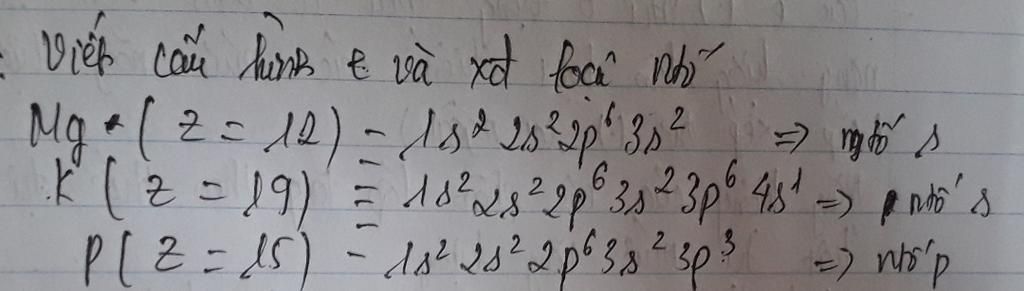 : Viết cấu hình e và xđ loại ntố
Mg - ( Z = 12 ) = 1s² 2s² 2p⁶ 3s² => ngtố s
K ( Z = 19 ) = 1s² 2s² 2p⁶ 3s² 3p⁶ 4s¹ => ntố s
P ( Z = 15 ) - 1s² 2s² 2p⁶ 3s² 3p³ => ntố p